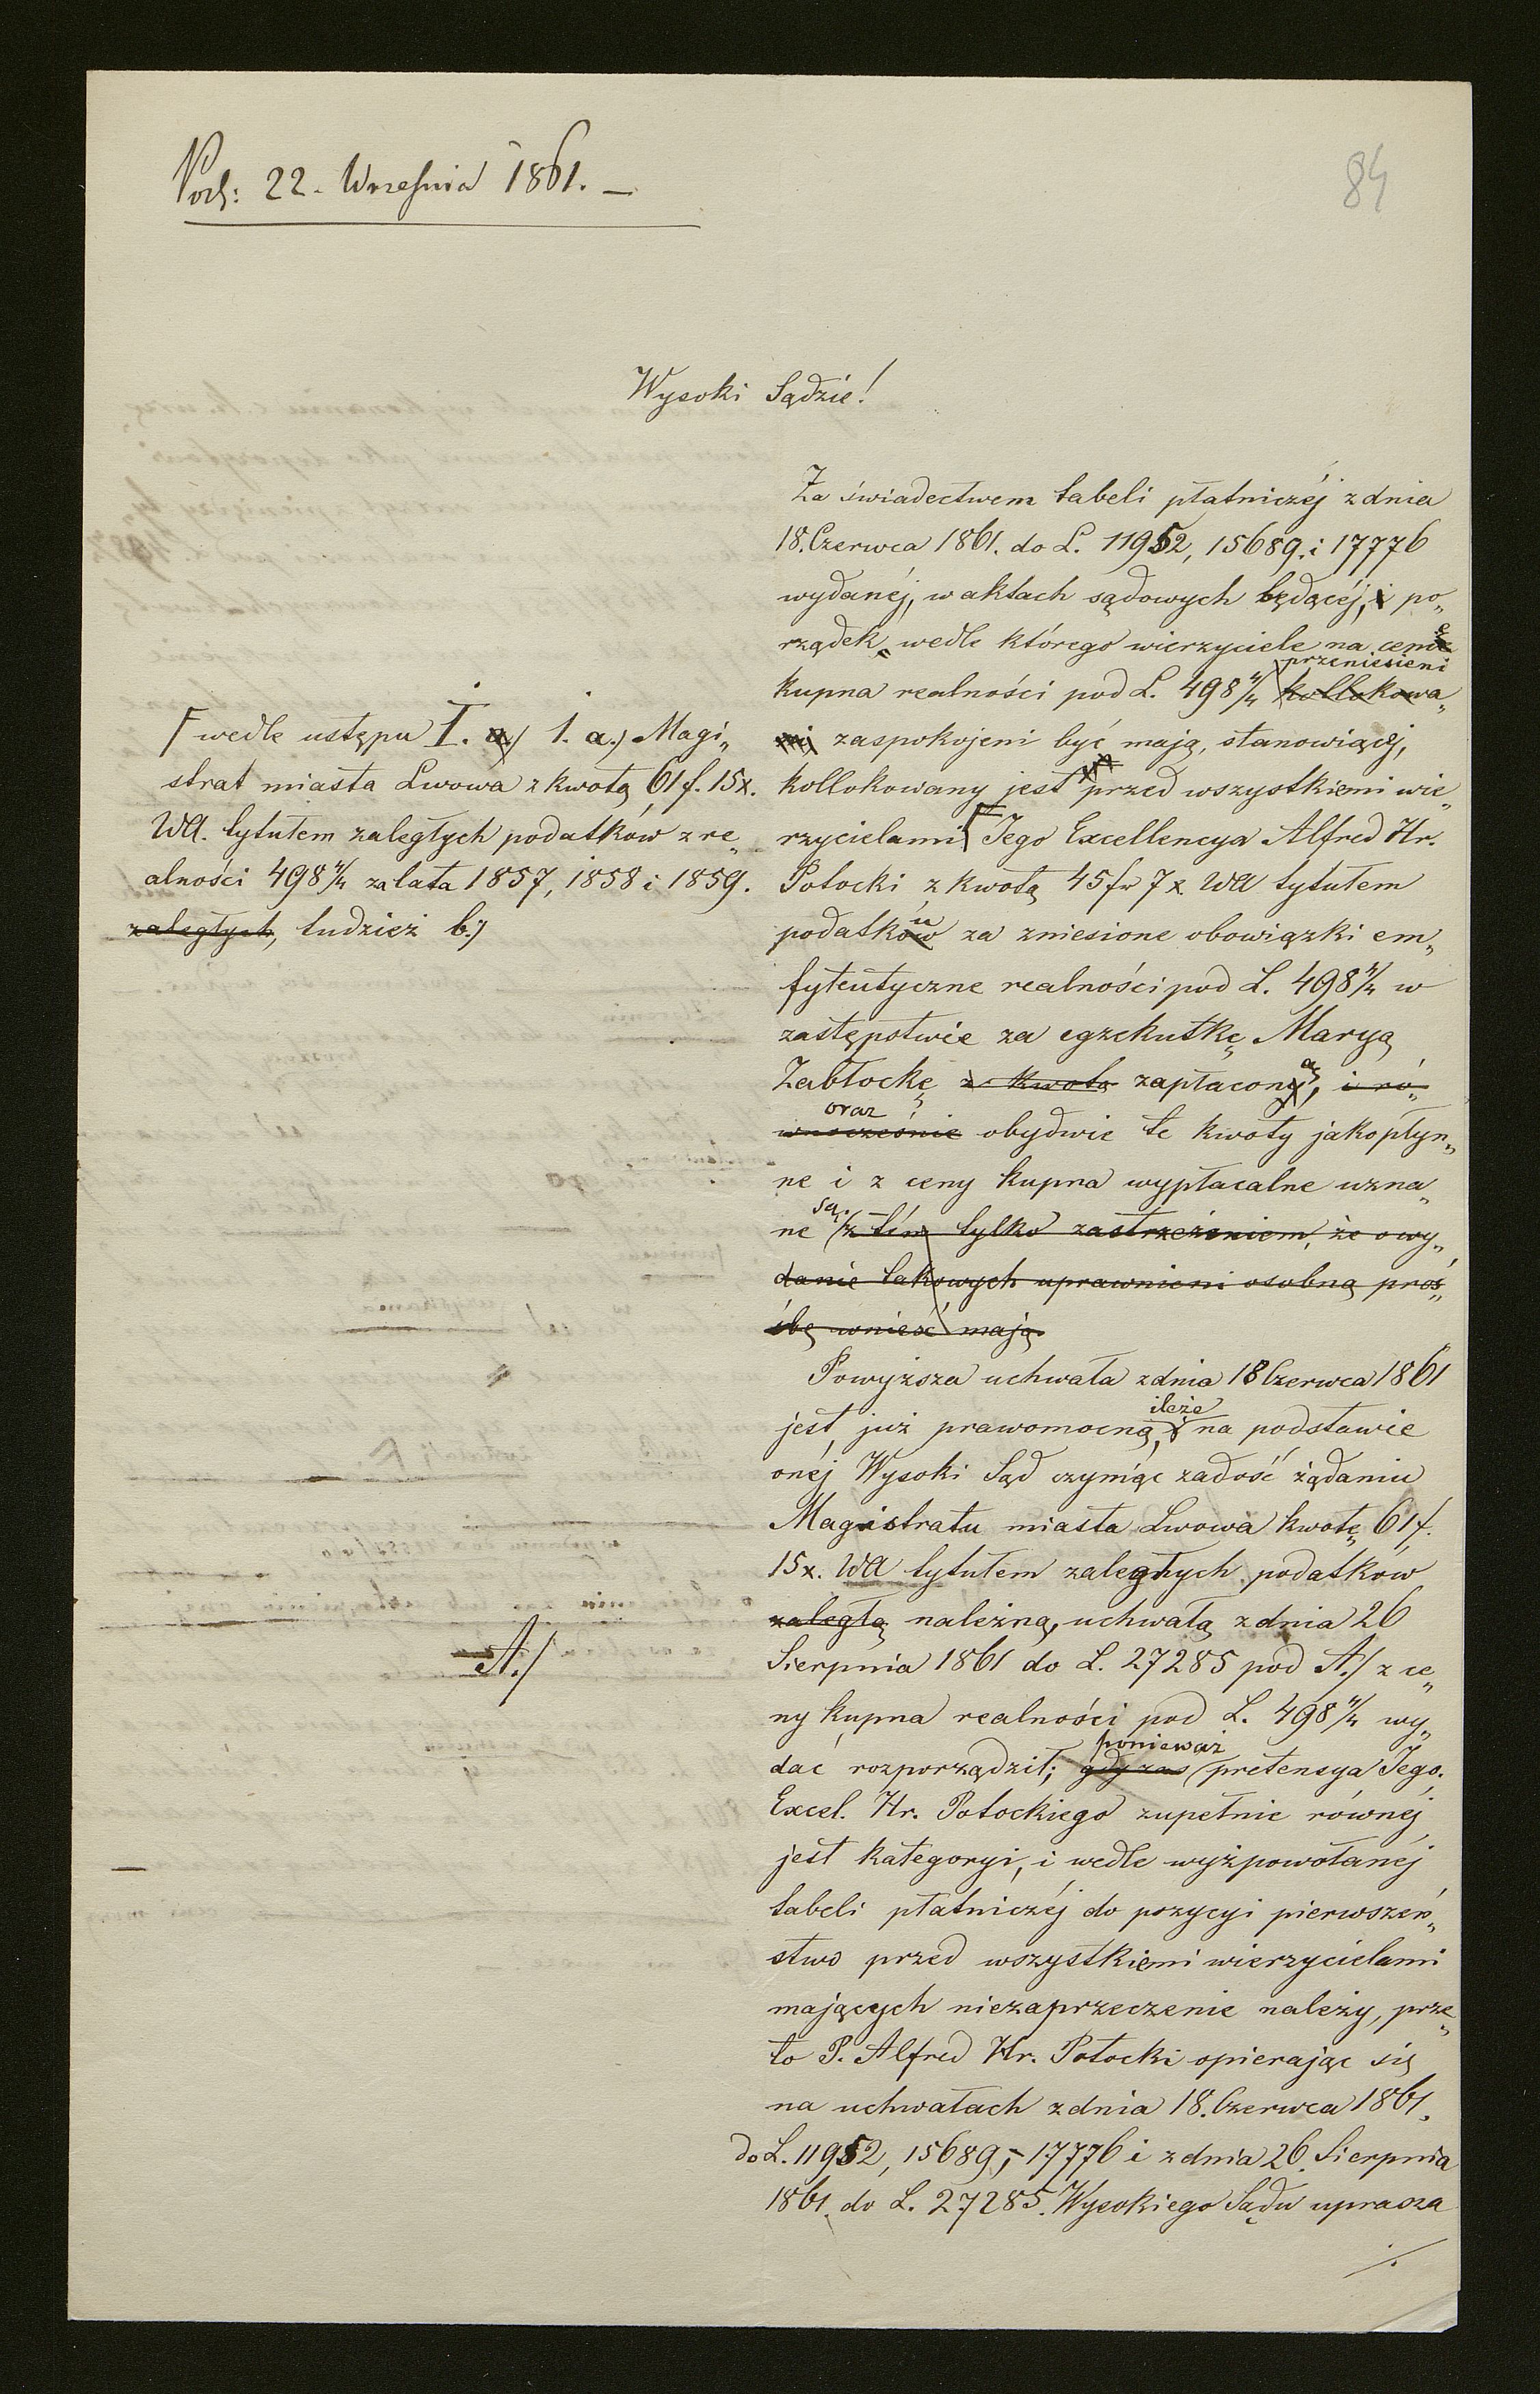 Pod: 22. Września 1861. —
84
Wysoki Sądzie!
Za świadectwem tabeli płatniczéj z dnia
18. Czerwca 1861. do L. 11952, 15689. i 17776
wydanéj, w aktach sądowych będącéj, i po„
rządek, wedle którego wierzyciele na cenie
przeniesieni
kupna realności pod L. 498 4/4 kollokowa„
ni zaspokojeni być mają, stanowiącéj,
kollokowany jest przed wszystkiemi wie„
rzycielami Jego Excellencya Alfred Hr.
Potocki z kwotą 45 fr 7 x WA tytułem
podatków za zniesione obowiązki em„
fyteutyczne realności pod L. 498 4/4 w
zastępstwie za egzekutkę Maryą
Zabłocką z kwotą zapłaconą, i ró„
oraz
wnocześnie obydwie te kwoty jako płyn„
ne i z ceny kupna wypłacalne uzna„
są.
ne z tém tylko zastrzeżeniem, że o wy„
danie takowych uprawnieni osobną proś„
śbę wnieść mają.
Powyższa uchwała z dnia 18 Czerwca 1861
ileże
jest już prawomocną, na podstawie
onéj Wysoki Sąd czyniąc zadość żądaniu
Magistratu miasta Lwowa kwotę 61 f.
15 x. WA tytułem zaległych podatków
zaległą należną, uchwałą z dnia 26
Sierpnia 1861 do L. 27285 pod A./ z ce„
ny kupna realności pod L. 498 4/4 wy„
ponieważ
dać rozporządził; gdy zas pretensya Jego.
Excel. Hr. Potockiego zupełnie równéj
jest kategoryi, i wedle wyżpowołanéj
tabeli płatniczéj do pozycyi pierwszeń„
stwo przed wszystkiemi wierzycielami
mających niezaprzeczenie należy, prze„
to P. Alfred Hr. Potocki opierając się
na uchwałach z dnia 18. Czerwca 1861.
do L. 11952, 15689,- 17776 i z dnia 26. Sierpnia
1861. do L. 27285. Wysokiego Sądu uprasza
./.
wedle ustępu I. a) 1. a.) Magi„
strat miasta Lwowa z kwotą 61 f. 15 x.
WA. tytułem zaległych podatków z re„
alności 498 4/4 za lata 1857, 1858 i 1859.
zaległych, tudzież b.)
A./